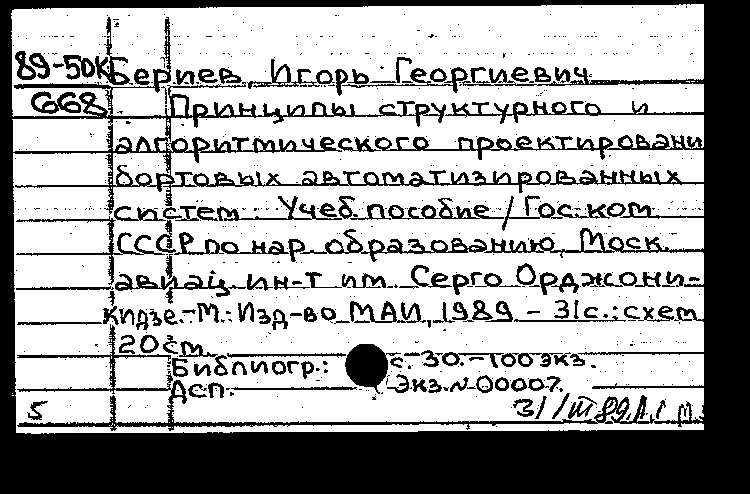 89-50К Бериев, Игорь Георгиевич
668 Принципы структурного и
алгоритмического проектировани
бортовых автоматизированных
систем : Учеб. пособие / Гос. ком.
СССР по нар. образованию, Моск.
авиац. ин-т им. Серго Орджони-
кидзе. - М.: Изд-во МАИ, 1989 - 31с.: схем
20см.
Библиогр.: с. 30. - 100 экз.
ДСП. Экз. N 00007.
5 31/III 89